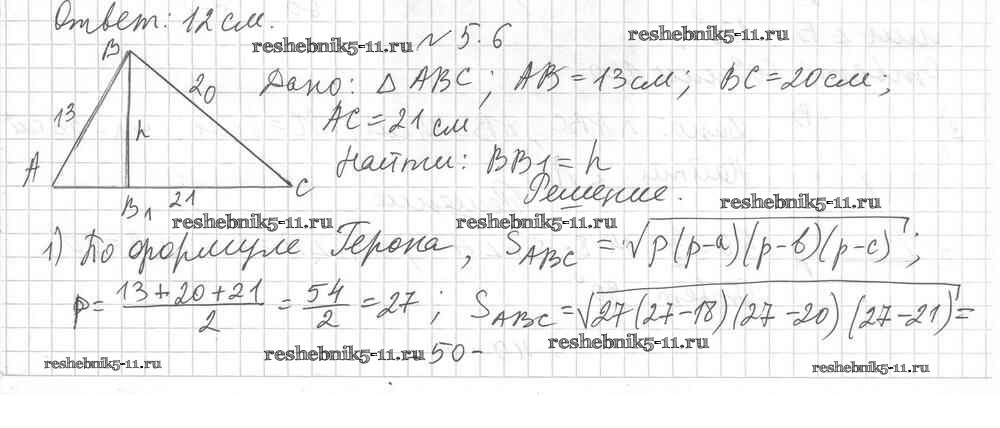 Ответ: 12 см.
reshebnik5-11.ru
№ 5.6
reshebnik5-11.ru
Дано: △ABC; AB=13см; BC=20см;
AC=21 см
Найти: BB1=h
Решение.
B
20
13
h
A
C
B1
21
reshebnik5-11.ru
reshebnik5-11.ru
reshebnik5-11.ru
1) По формуле Герона, SABC = √p(p-a)(p-b)(p-c);
p= 13+20+21/2 = 54/2 = 27; SABC=√27(27-18)(27-20)(27-21)=
reshebnik5-11.ru
reshebnik5-11.ru
- 50 -
reshebnik5-11.ru
reshebnik5-11.ru